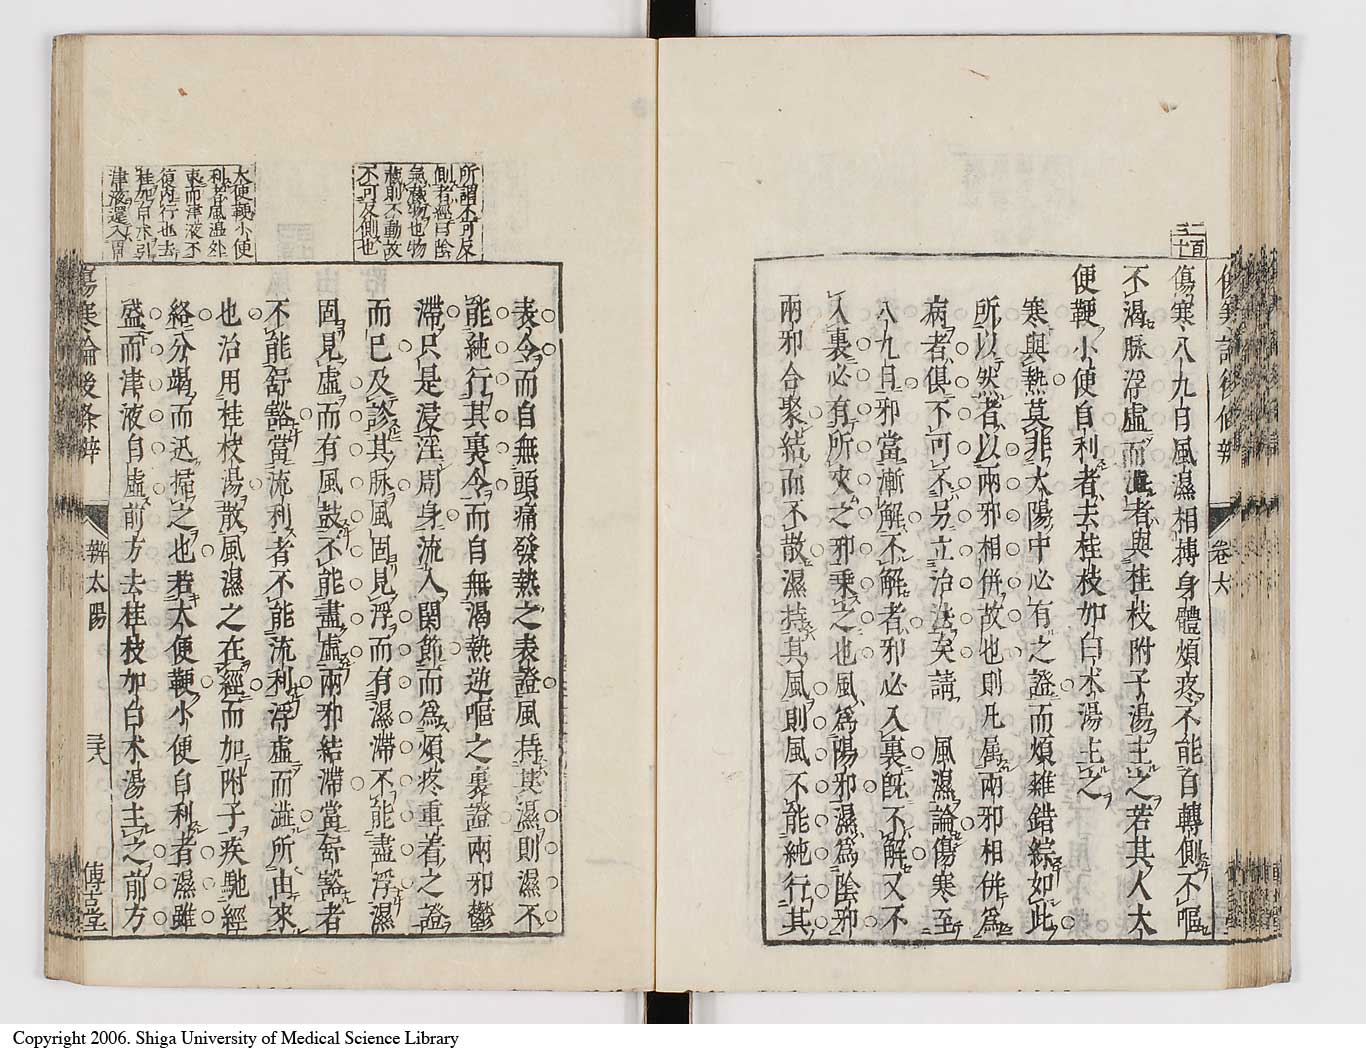 一百
三十
傷寒八九日風濕相搏身體煩疼不能自轉側不嘔
不渴脉浮虛而濇者與桂枝附子湯主之若其人大
便鞕小便自利者去桂枝加白术湯主之
寒與熱莫非太陽中必有之證而煩雜錯綜如此
所以然者以兩邪相併故也則凡属兩邪相併爲
病者俱不可不另立治法矣請 風濕論傷寒至
八九日邪當漸解不解者邪必入裏旣不解又不
入裏必有所夾之邪乘之也風爲陽邪濕爲陰邪
兩邪合聚結而不散濕持其風則風不能純行其
卷六
所謂不可反
側者經曰陰
氣藏物也物
藏則不動故
不可反側也
表令而自無頭痛發熱之表證風持其濕則濕不
能純行其裏令而自無渴熱逆嘔之裏證兩邪鬱
滯只是浸淫周身流入関節而爲煩疼重着之證
而已及診其脉風固見浮而有濕滯不能盡浮濕
固見虛而有風鼓不能盡虛兩邪結滯當舒豁者
不能舒豁當流利者不能流利浮虛而濇所由來
也治用桂枝湯散風濕之在經而加附子疾馳經
絡分竭而迅掃之也若大便鞕小便自利者濕雖
盛而津液自虛前方去桂枝加白术湯主之前方
大便鞕小便
利者風濕外
裏而津液不
復內行也去
桂加白术引
津液還入胃
傷寒論後条辨
辨太陽
三八
傅古堂
Copyright 2006. Shiga University of Medical Science Library